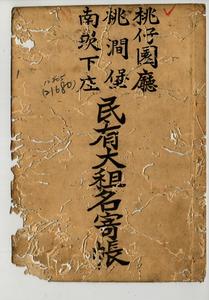 桃仔園廳
桃澗堡
南崁下庄
民有大租名寄帳